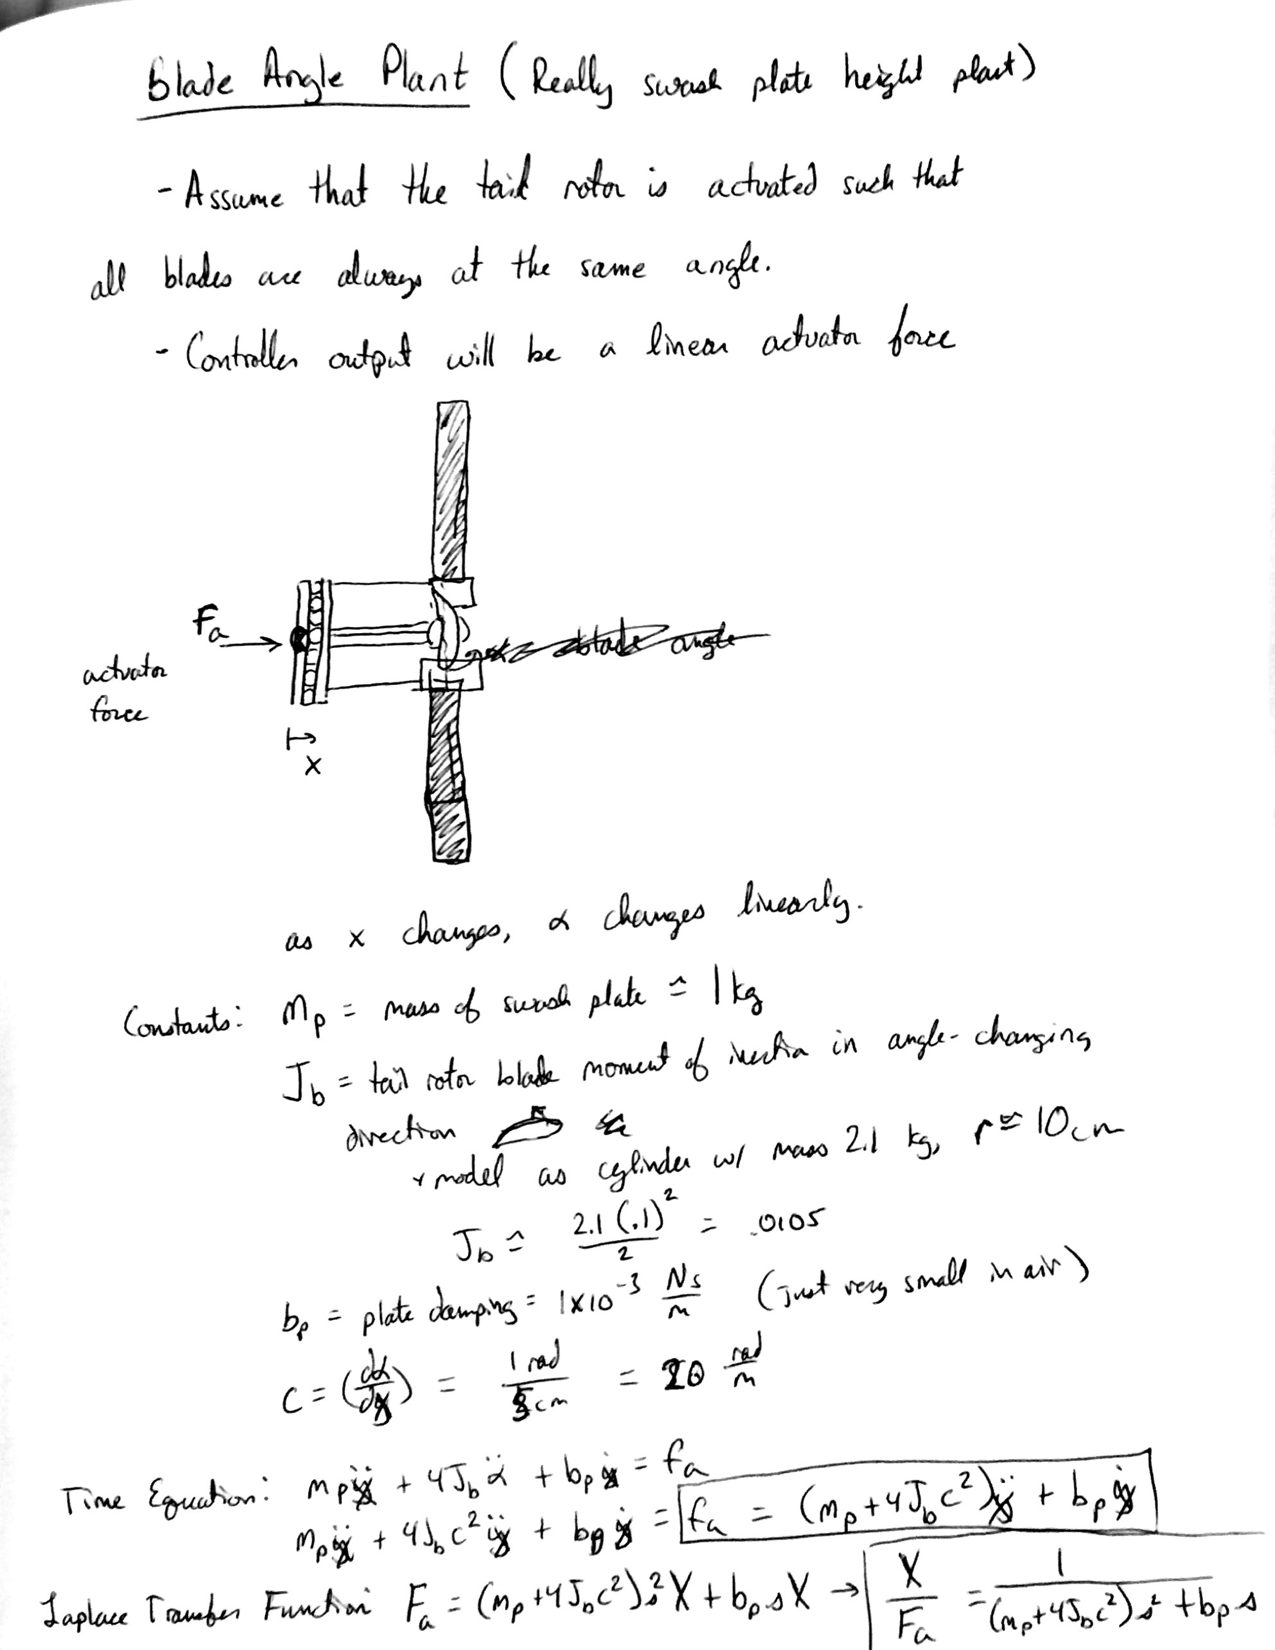 Blade Angle Plant (Really swash plate height plant)
- Assume that the tail rotor is actuated such that
all blades are always at the same angle.
- Controller output will be a linear actuator force
Fa
actuator
force
x
blade angle
as x changes, α changes linearly.
Constants: mₚ = mass of swash plate ≈ 1 kg
J_b = tail rotor blade moment of inertia in angle-changing
direction
* model as cylinder w/ mass 2.1 kg, r ≈ 10 cm
J_b ≈ 2.1 (.1)²/2 = .0105
bₚ = plate damping = 1×10⁻³ Ns/m (just very small in air)
C = (dα/dx) = 1 rad/5cm = 20 rad/m
Time Equation: mₚẍ + 4J_b α̈ + bₚẋ = fa
mₚẍ + 4J_b c²ẍ + bₚẋ = fa = (mₚ + 4J_b c²)ẍ + bₚẋ
Laplace Transfer Function: Fa = (mₚ+4J_b c²)s²X + bₚsX → X/Fa = 1/((mₚ+4J_b c²)s² + bₚs)